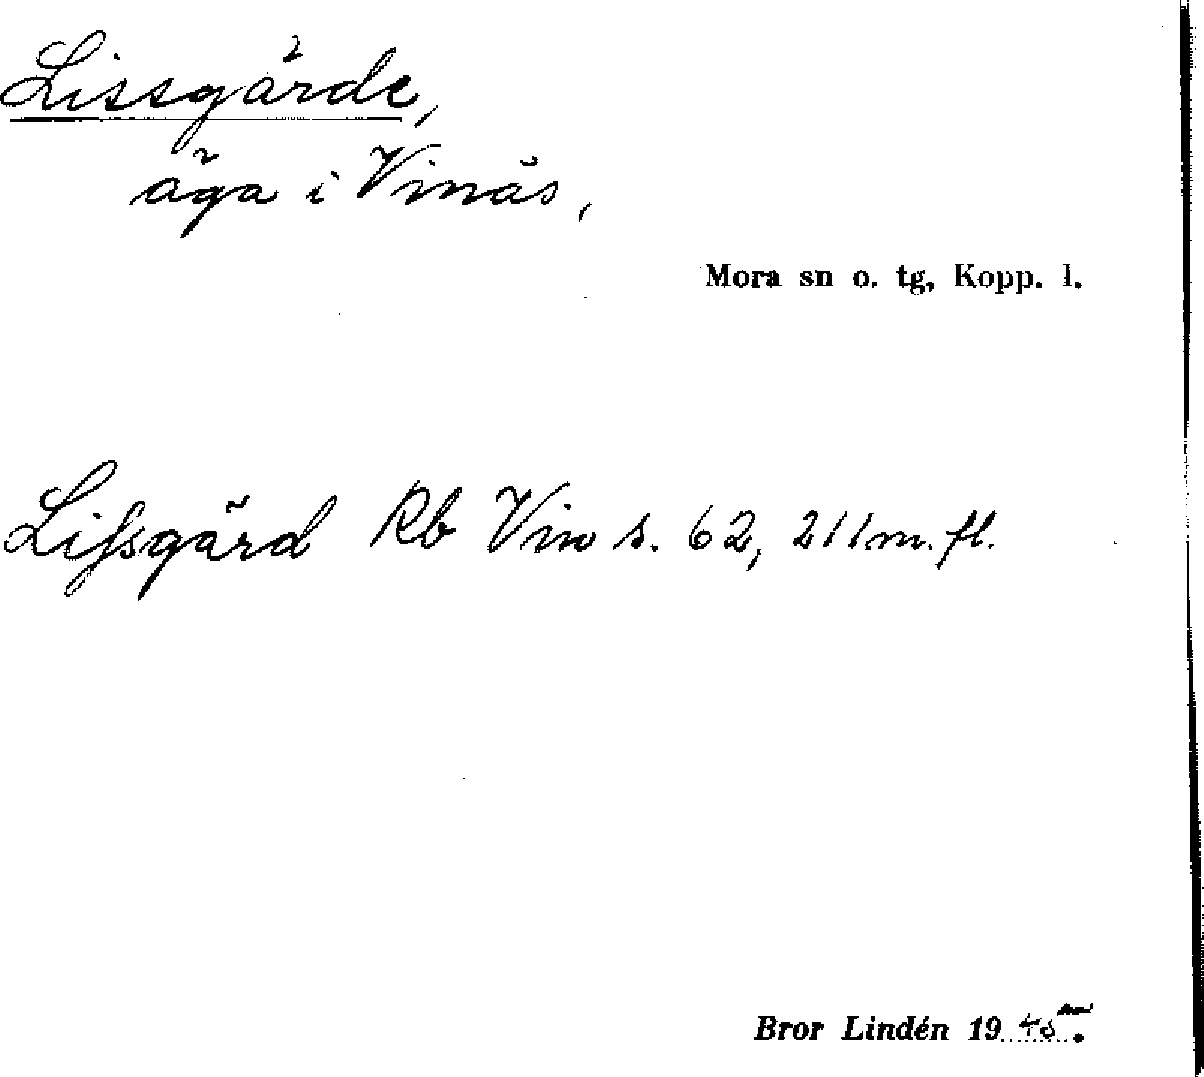 Lissgärde,
äga i Vinäs,
Mora sn o. tg, Kopp. l.
Lissgärd Rb Vin s. 62, 211 m. fl.
Bror Lindén 1945.